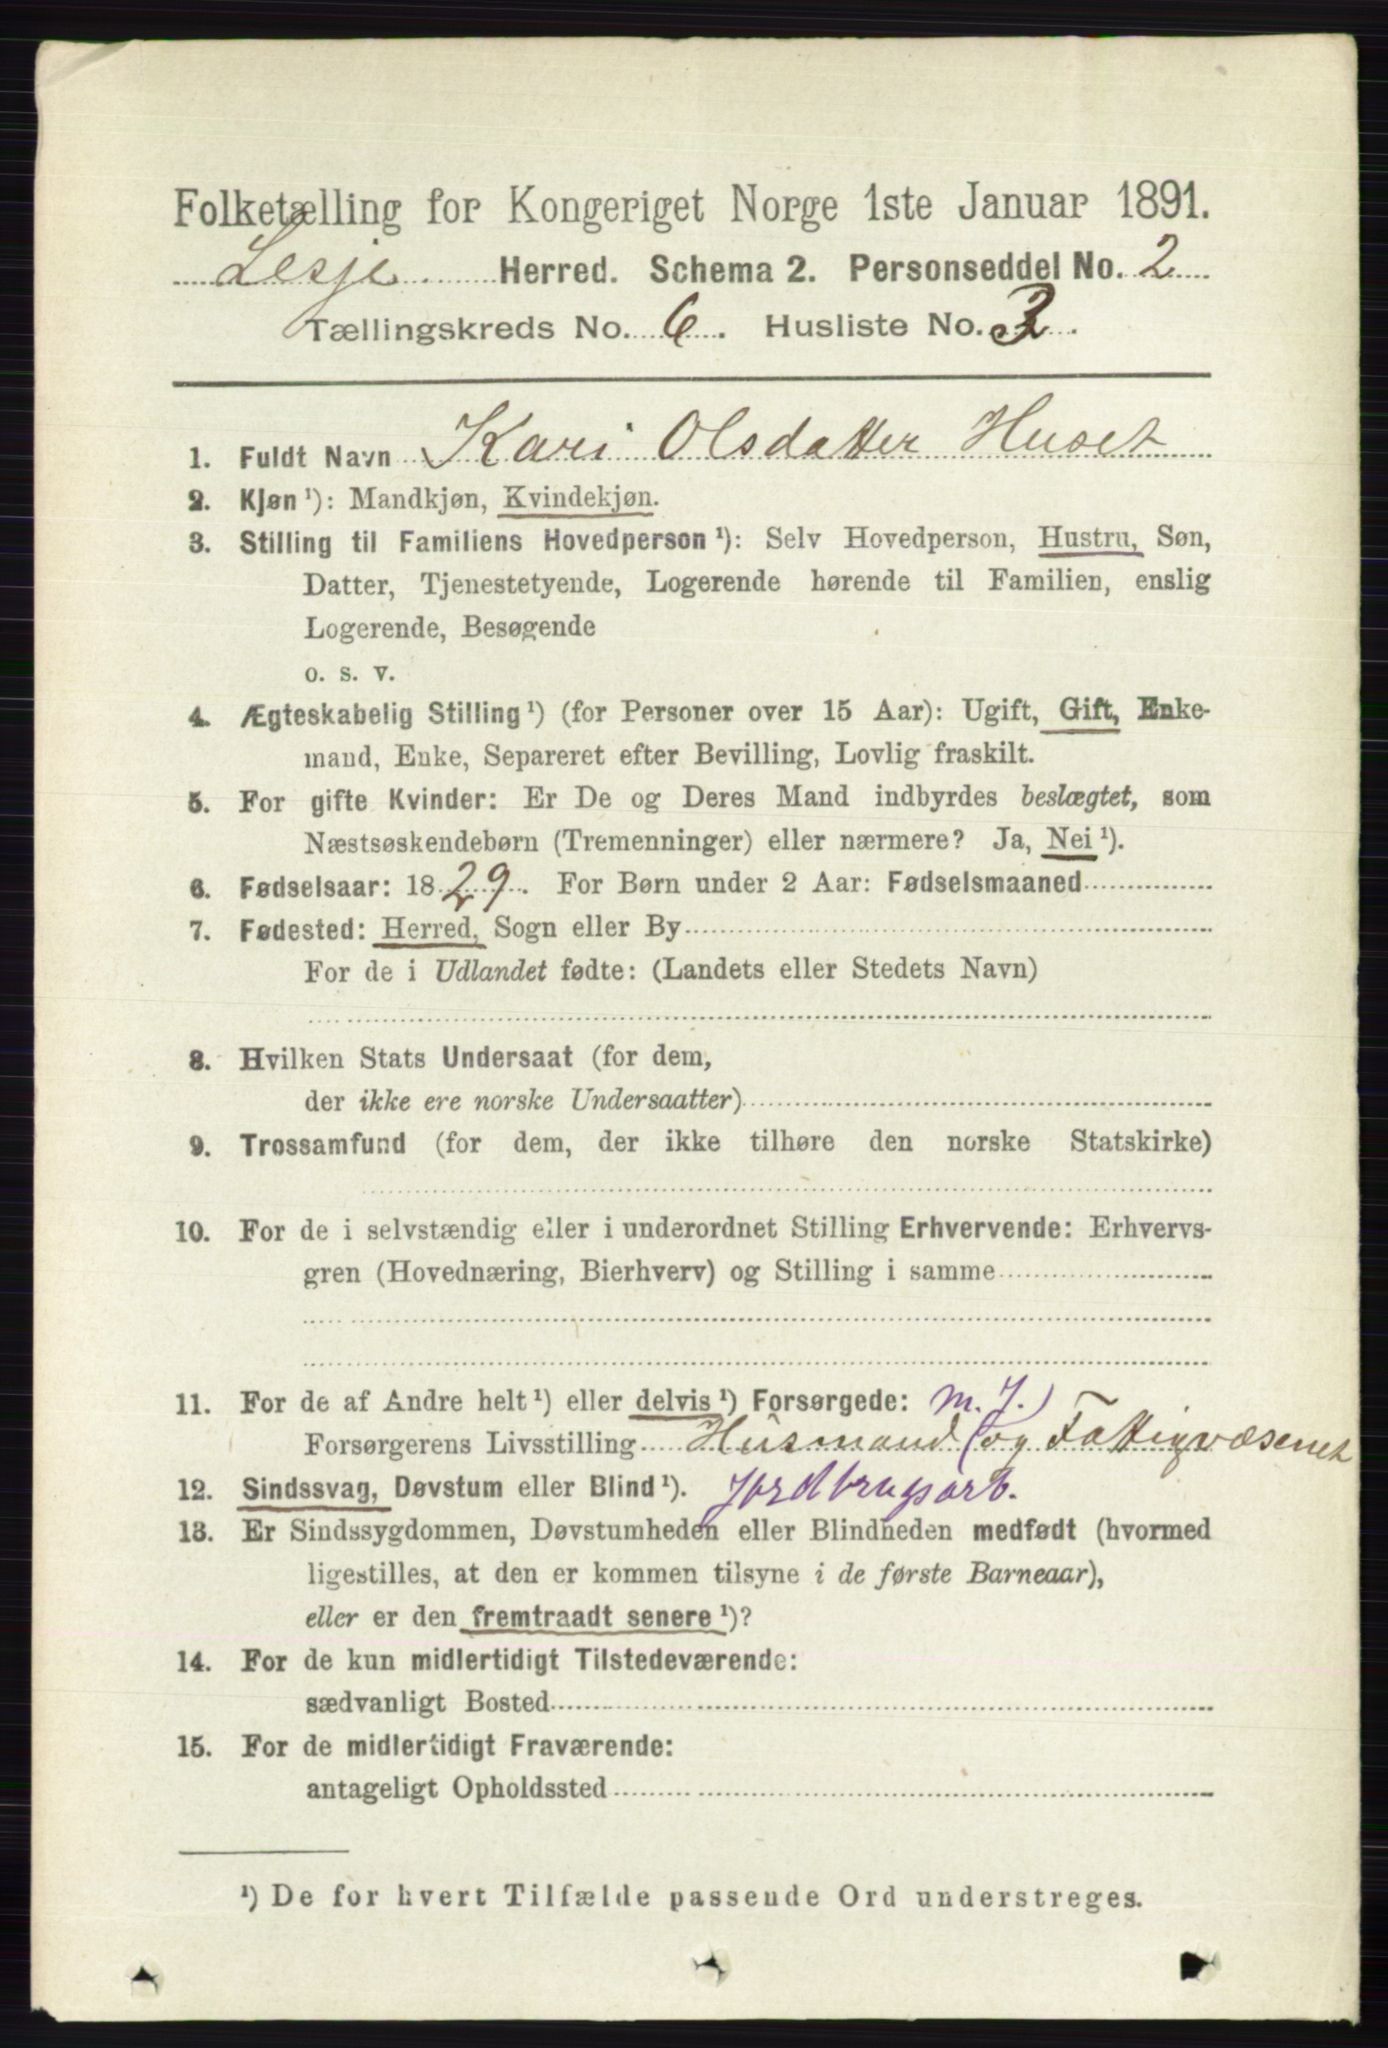 Folketælling for Kongeriget Norge 1ste Januar 1891.
Lesje Herred. Schema 2. Personseddel No. 2
Tællingskreds No. 6. Husliste No. 3.
1. Fuldt Navn Kari Olsdatter Huset
2. Kjøn¹): Mandkjøn, Kvindekjøn.
3. Stilling til Familiens Hovedperson¹): Selv Hovedperson, Hustru, Søn,
Datter, Tjenestetyende, Logerende hørende til Familien, enslig
Logerende, Besøgende
o. s. v.
4. Ægteskabelig Stilling¹) (for Personer over 15 Aar): Ugift, Gift, Enke-
mand, Enke, Separeret efter Bevilling, Lovlig fraskilt.
5. For gifte Kvinder: Er De og Deres Mand indbyrdes beslægtet, som
Næstsøskendebørn (Tremenninger) eller nærmere? Ja, Nei¹).
6. Fødselsaar: 1829. For Børn under 2 Aar: Fødselsmaaned
7. Fødested: Herred, Sogn eller By
For de i Udlandet fødte: (Landets eller Stedets Navn)
8. Hvilken Stats Undersaat (for dem,
der ikke ere norske Undersaatter)
9. Trossamfund (for dem, der ikke tilhøre den norske Statskirke)
10. For de i selvstændig eller i underordnet Stilling Erhvervende: Erhvervs-
gren (Hovednæring, Bierhverv) og Stilling i samme
11. For de af Andre helt¹) eller delvis¹) Forsørgede: m. J.)
Forsørgerens Livsstilling Husmand (og Fattigvæsenet
12. Sindssvag, Døvstum eller Blind¹). Jordbrugsarb.
13. Er Sindssygdommen, Døvstumheden eller Blindheden medfødt (hvormed
ligestilles, at den er kommen tilsyne i de første Barneaar),
eller er den fremtraadt senere¹)?
14. For de kun midlertidigt Tilstedeværende:
sædvanligt Bosted
15. For de midlertidigt Fraværende:
antageligt Opholdssted
¹) De for hvert Tilfælde passende Ord understreges.